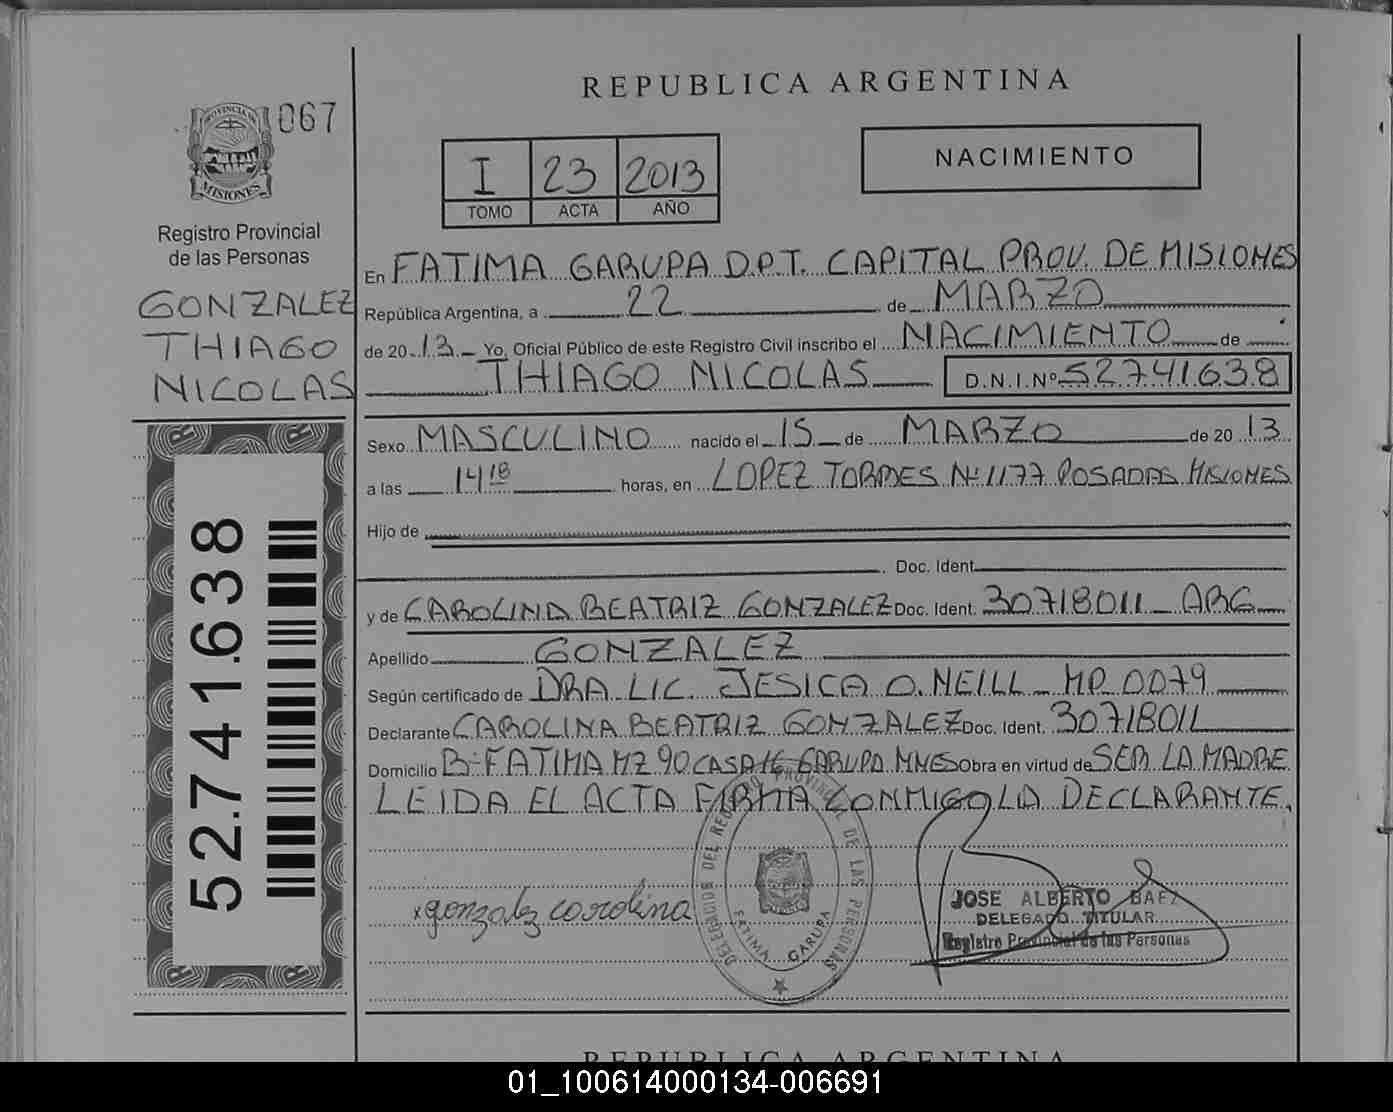 REPUBLICA ARGENTINA
PROVINCIA DE
MISIONES
067
I 23 2013
TOMO ACTA AÑO
NACIMIENTO
Registro Provincial
de las Personas
GONZALEZ
THIAGO
NICOLAS
52.741.638
En FATIMA GARUPA D.P.T. CAPITAL PROV. DE MISIONES
República Argentina, a 22 de MARZO
de 20 13 Yo, Oficial Público de este Registro Civil inscribo el NACIMIENTO de
THIAGO NICOLAS D.N.I.Nº 52.741.638
Sexo MASCULINO nacido el 15 de MARZO de 20 13
a las 14 18 horas, en LOPEZ TORRES Nº 1177 POSADAS MISIONES
Hijo de
Doc. Ident.
y de CAROLINA BEATRIZ GONZALEZ Doc. Ident. 30718011 ARG
Apellido GONZALEZ
Según certificado de DRA LIC. JESICA O. NEILL MP 0079
Declarante CAROLINA BEATRIZ GONZALEZ Doc. Ident. 30718011
Domicilio Bº FATIMA MZ 90 CASA 16 GARUPA MNES Obra en virtud de SER LA MADRE
LEIDA EL ACTA FIRMA CONMIGO LA DECLARANTE.
x gonzalez carolina
DELEGACION DEL REGISTRO PROVINCIAL DE LAS PERSONAS
FATIMA GARUPA
JOSE ALBERTO BAEZ
DELEGADO TITULAR
Registro Provincial de las Personas
REPUBLICA ARGENTINA
01_100614000134-006691